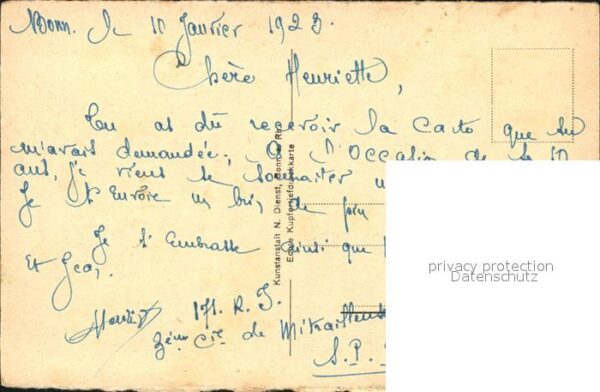 Bonn. le 10 Janvier 1923.
Chère Henriette,
Tu as dû recevoir la Carte que tu
m'avais demandée, à l'Occasion de te 10
ans, je viens te souhaiter
Je t'Envoie un de
Je t'Embrasse ainsi que
Et Geo,
171. R. I.
2ème Cie de Mitrailleuse
S. P.
Kunstanstalt N. Dienst, Bonn a. Rh.
Echte Kupfertiefdruckkarte
privacy protection
Datenschutz